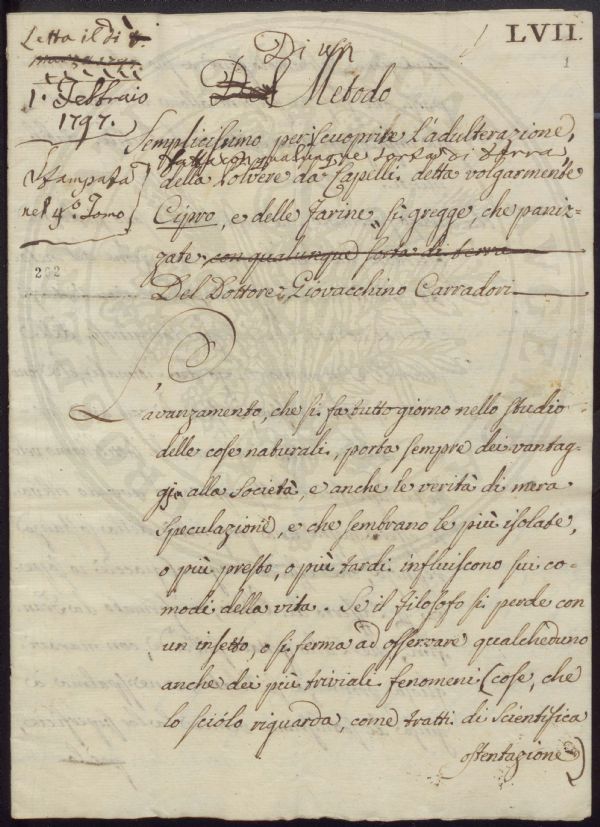 LVII.
1
Letta il dì
1.° Febbraio
1797.
Stampata
nel 9.° Tomo
202
Di un
Del Metodo
Semplicissimo per iscuoprire l'adulterazione,
fatta con qualunque sorta di terra,
della Polvere da Capelli detta volgarmente
Cipro, e delle Farine sì gregge, che paniz=
zate con qualunque sorta di terra
Del Dottore Giovacchino Carradori
L'avanzamento, che si fa tutto giorno nello studio
delle cose naturali, porta sempre dei vantag-
gj alla Società, e anche le verità di mera
speculazione, e che sembrano le più isolate,
o più presto, o più tardi influiscono sui co-
modi della vita. Se il Filosofo si perde con
un insetto, o si ferma ad osservare qualcheduno
anche dei più triviali fenomeni (cose, che
lo sciolo riguarda, come tratti di scientifica
ostentazione)